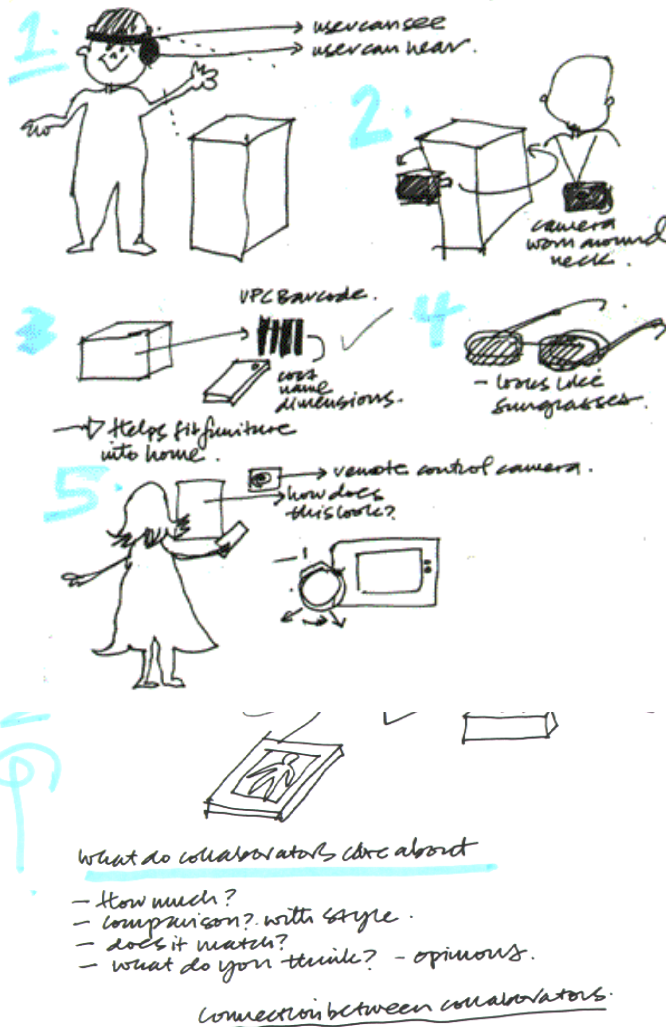 1.
user can see
user can hear.
2.
camera
worn around
neck.
UPC Barcode.
3
cost
name
dimensions.
Helps fit funiture
into home.
4
- looks like
sungrasses.
5.
remote control camera.
how does
this look?
what do collaborators care about
- How much?
- comparison? with style.
- does it match?
- what do you think? - opinions.
connection between collaborators.